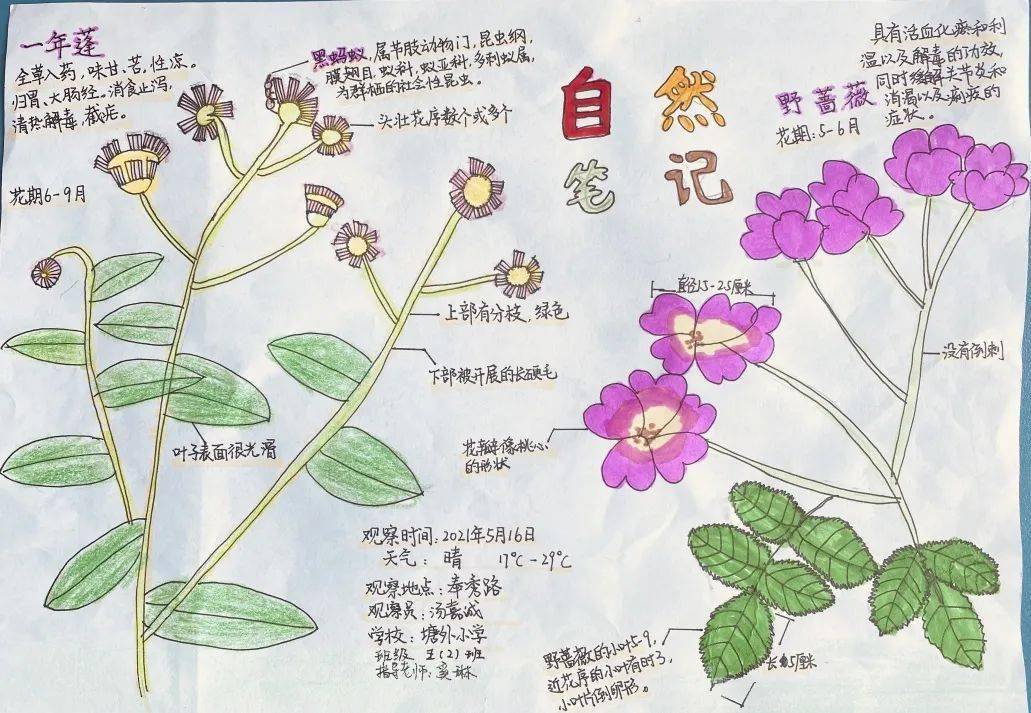 一年蓬
全草入药，味甘、苦，性凉。
归胃、大肠经。消食止泻，
清热解毒，截疟。
花期6-9月
黑蚂蚁，属节肢动物门，昆虫纲，
膜翅目，蚁科，蚁亚科，多刺蚁属，
为群栖的社会性昆虫。
头壮花序数个或多个
上部有分枝，绿色
下部被开展的长硬毛
叶子表面很光滑
自然
笔记
野蔷薇
花期：5-6月
具有活血化瘀和利
湿以及解毒的功效，
同时缓解关节炎和
消渴以及痢疾的
症状。
直径1.5-2.5厘米
没有倒刺
花瓣像桃心
的形状
观察时间：2021年5月16日
天气：晴 17℃-29℃
观察地点：奉秀路
观察员：汤嘉诚
学校：塘外小学
班级 (2)班
指导老师：
野蔷薇的小叶5-9，
近花序的小叶有时3，
小叶片倒卵形。
厘米